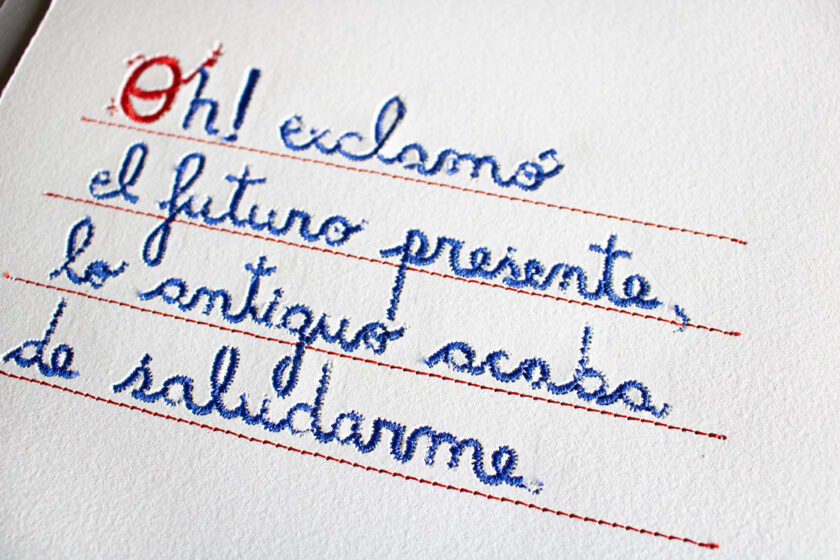 Oh! exclamó
el futuro presente,
lo antiguo acaba
de saludarme.